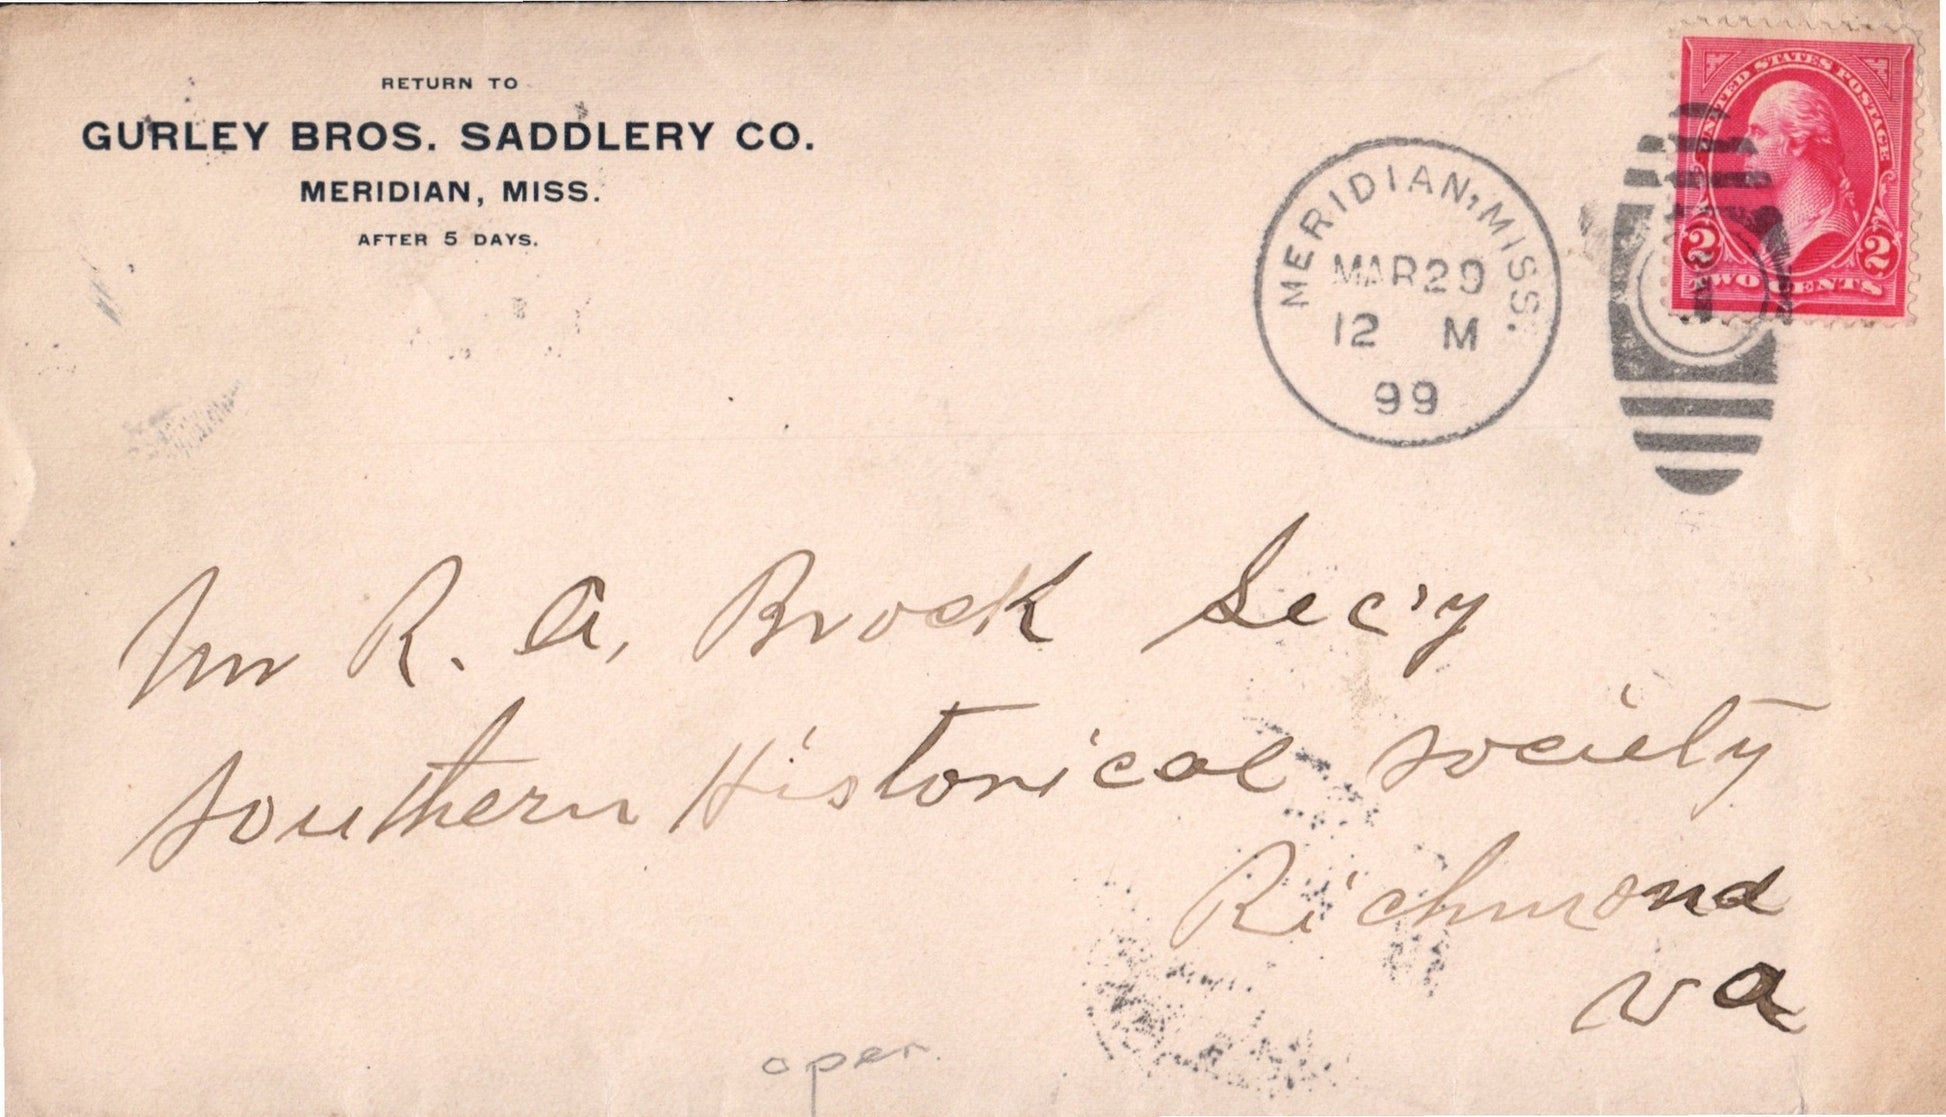 RETURN TO
GURLEY BROS. SADDLERY CO.
MERIDIAN, MISS.
AFTER 5 DAYS.
MERIDIAN, MISS.
MAR 29
12 M
99
UNITED STATES POSTAGE
2 2
TWO CENTS
1
Mr R. A, Brock Sec'y
Southern Historical Society
Richmond
Va
open